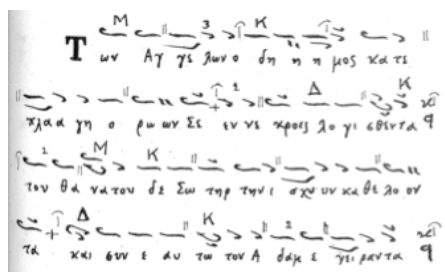 Των Αγ γε λων ο δη η η μος κα τε
πλαα γη ο ρω ων Σε εν νε κροις λο γι σθεντα
τον θα να του δε Σω τηρ την ι σχυ υν κα θε λο ον
τα και συν ε αυ τω τον Α δαμ ε γει ραντα